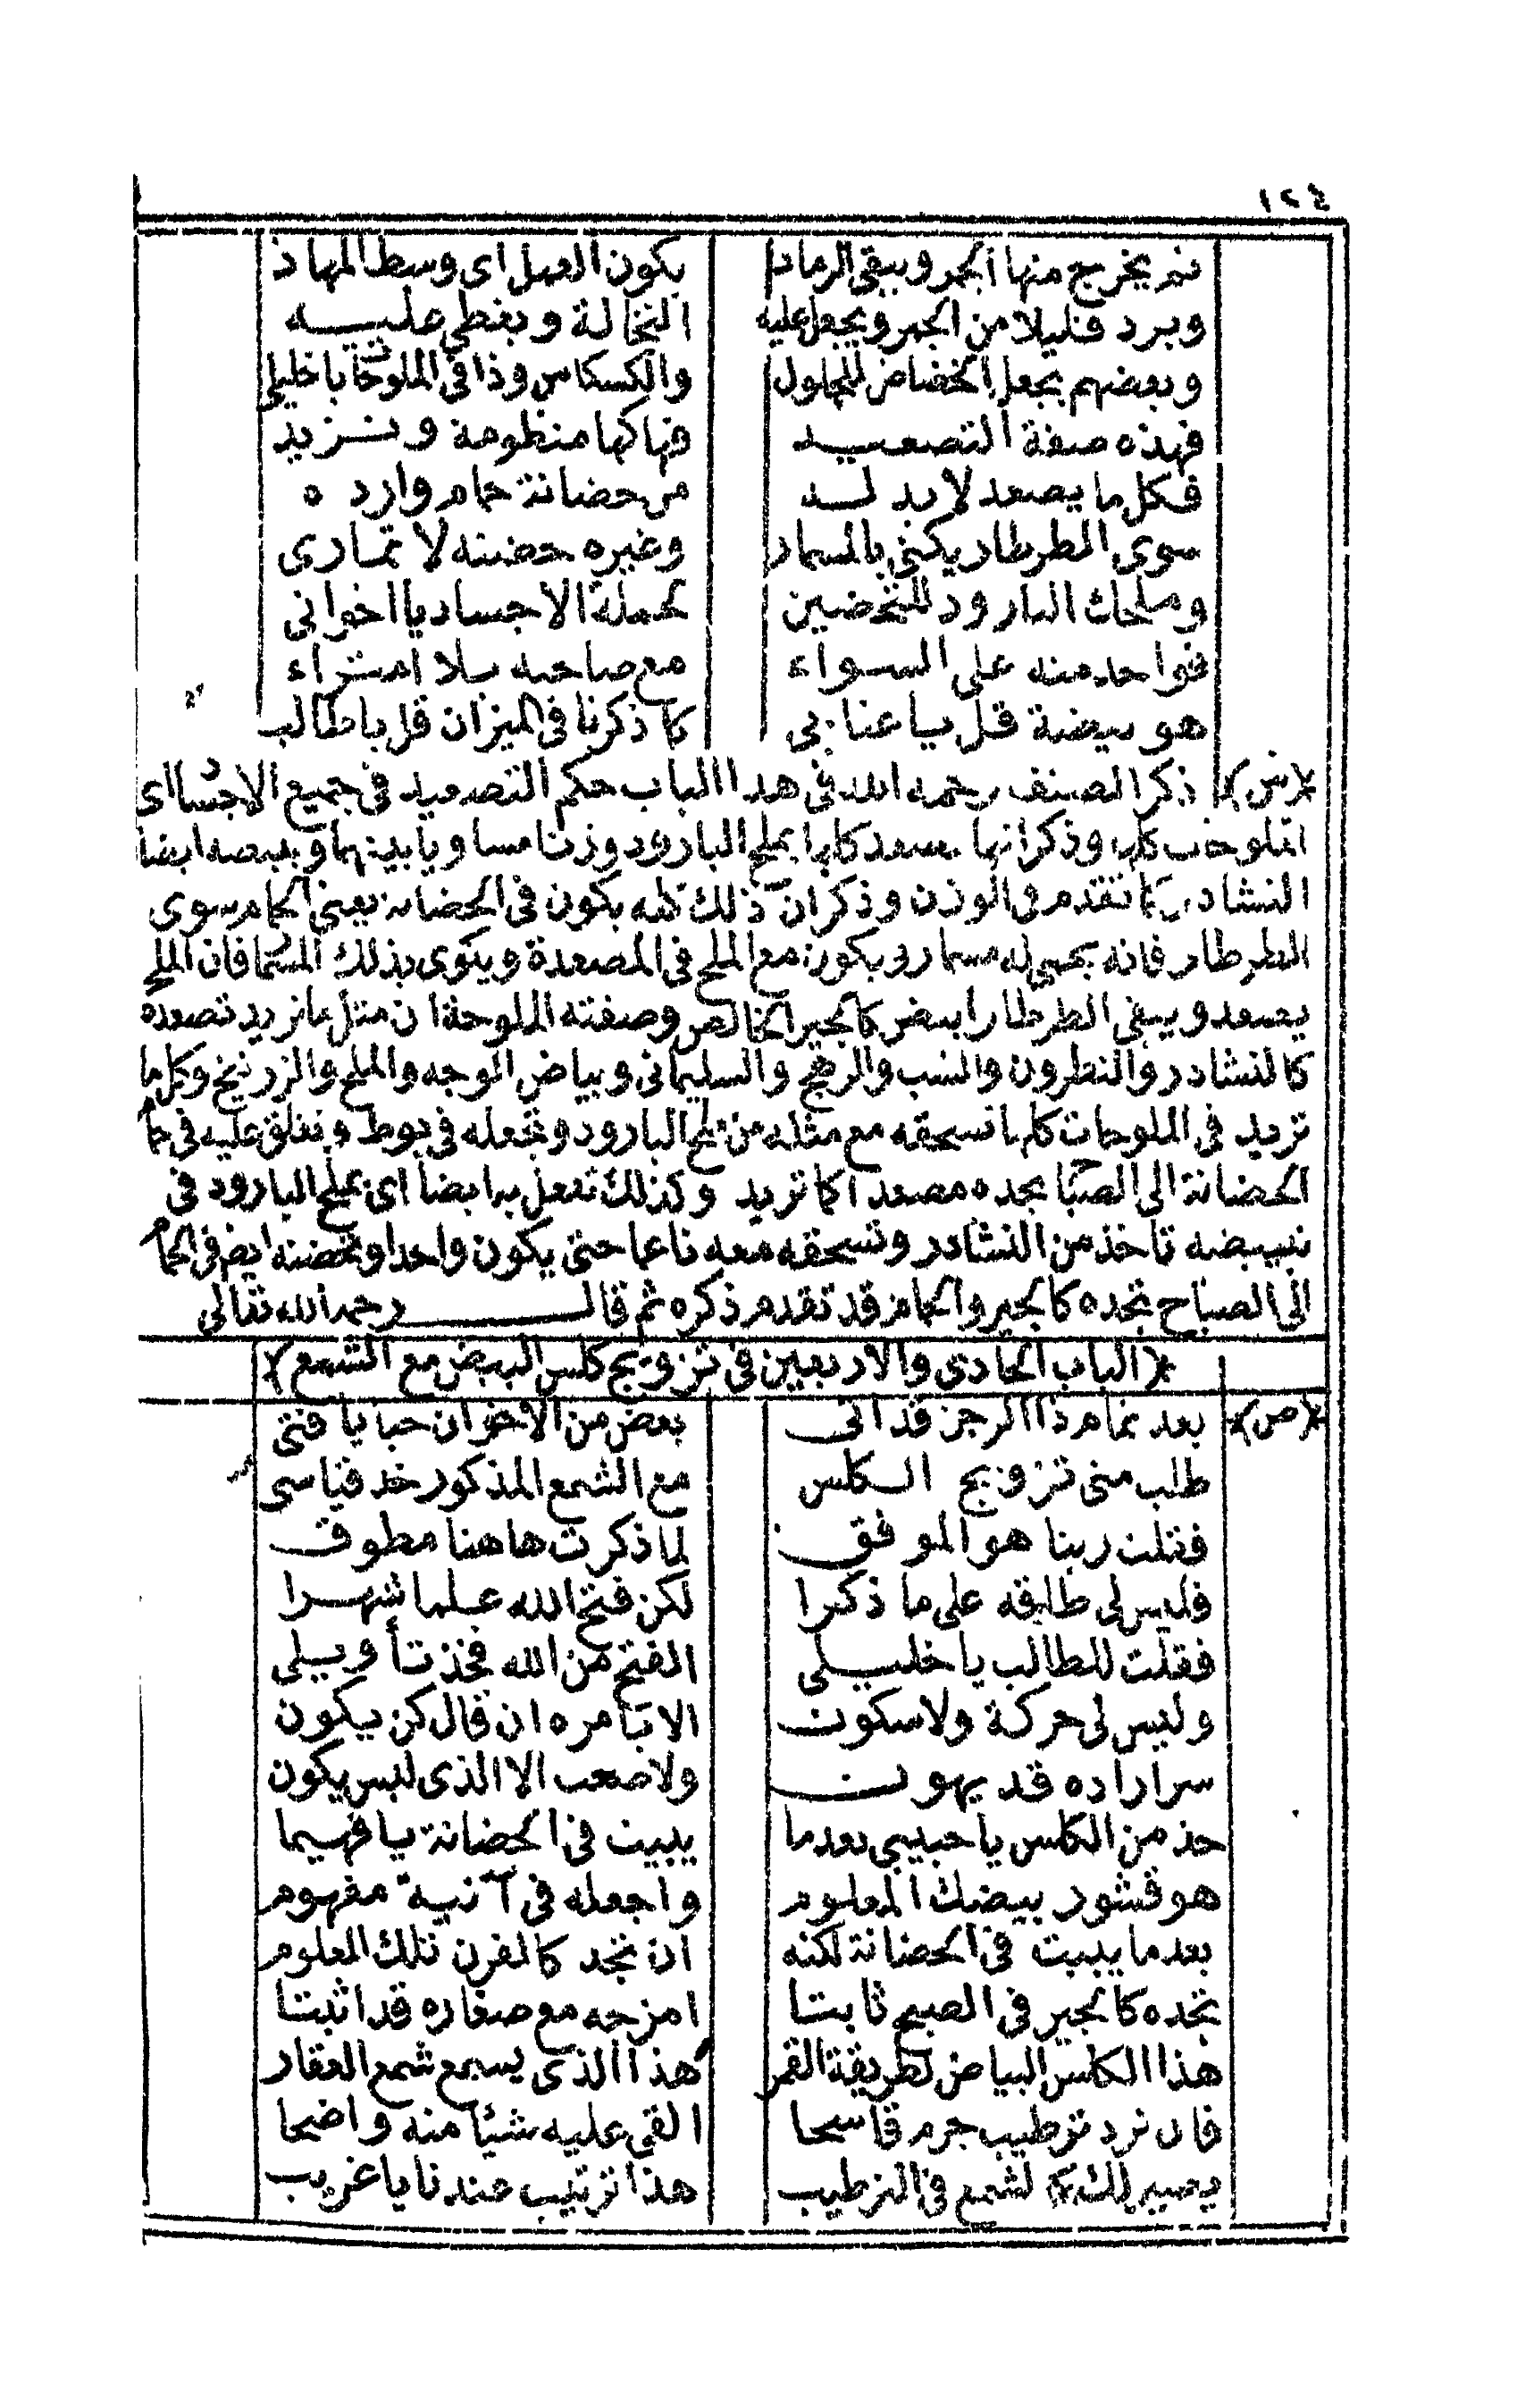 ١٢٤
ثم يخرج منها الجمر ويبقى الرماد يكون العمل اى وسط المهاد
وبرد قليلا من الجمر ويجعل عليه النخالة ويغطى عليه
وبعضهم يجعل الخضاض للمحلول والكسكاس وذا فى الملوحات ياخليلى
فهذه صفة التصعيد فهاكها منظومة وتزيد
فكل ما يصعد لابد له من حضانة حمام وارده
سوى الطرطار يكنى بالمسمار وغيره حضنه لا تمارى
وملحك البارود للتحضين لجملة الاجساد يا اخوانى
فواحد منه على السواء مع صاحبه بلا امتراء
هو بيضة قل يا عنابى كما ذكرنا فى الميزان قل ياطالب
﴿ش﴾ ذكر المصنف رحمه الله فى هذا الباب حكم التصعيد فى جميع الاجساد اى
الملوحات كلها وذكر انها تصعد كلها بملح البارود وزنا مساويا بينهما وبيبضه ايضا
النشادر كما تقدم فى الوزن وذكر ان ذلك كله يكون فى الحضانة يعنى الحمام سوى
الطرطار فانه يحمى له مسمار ويكون مع الملح فى المصعدة ويكوى بذلك المسمار فان الملح
يصعد ويبقى الطرطار ابيض كالجير الخالص وصفته الملوحة ان مثل ما تريد تصعده
كالنشادر والنطرون والشب والرهج والسليمانى وبياض الوجه والملح والزرنيخ وكل ما
تريد فى الملوحات كلها تسحقه مع مثله من ملح البارود وتجعله فى بوط وتغلق عليه فى حمام
الحضانة الى الصباح تجده مصعدا كما تريد وكذلك تفعل به ايضا اى بملح البارود فى
تبييضه تاخذ من النشادر وتسحقه معه ناعما حتى يكون واحدا وتحضنه ايض فى الحمام
الى الصباح تجده كالجير والحمام قد تقدم ذكره ثم قال رحمه الله تعالى
﴿الباب الحادى والاربعين فى تزويج كلس البيض مع الشمع﴾
﴿ص﴾ بعد تمام ذا الرجز قد اتى بعض من الاخوان حبا يا فتى
طلب منى تزويج الكلس مع الشمع المذكور خذ قياسى
فقلت ربنا هو الموفق لما ذكرت هاهنا مطوق
فليس لى طاقه على ما ذكرا لكن فتح الله علما شهرا
فقلت للطالب يا خليلى الفتح من الله فخذ تأويلى
وليس لى حركة ولا سكون الا بامره ان قال كن يكون
سر اراده قد يهون ولا صعب الا الذى ليس يكون
خذ من الكلس يا حبيبى بعد ما يبيت فى الحضانة يا فهيما
هو قشور بيضك المعلوم واجعله فى آنية مفهوم
بعد ما يبيت فى الحضانة لكنه ان تجد كالفرن تلك المعلوم
تجده كالجير فى الصبح ثابتا امزجه مع صفاره قد اثبتا
هذا الكلس البياض لطريقة القمر هذا الذى يسمع شمع العقار
فان ترد ترطيب جرم قاسحا القى عليه شيئا منه واضحا
يصير لك كالشمع فى الترطيب هذا ترتيب عندنا يا غريب